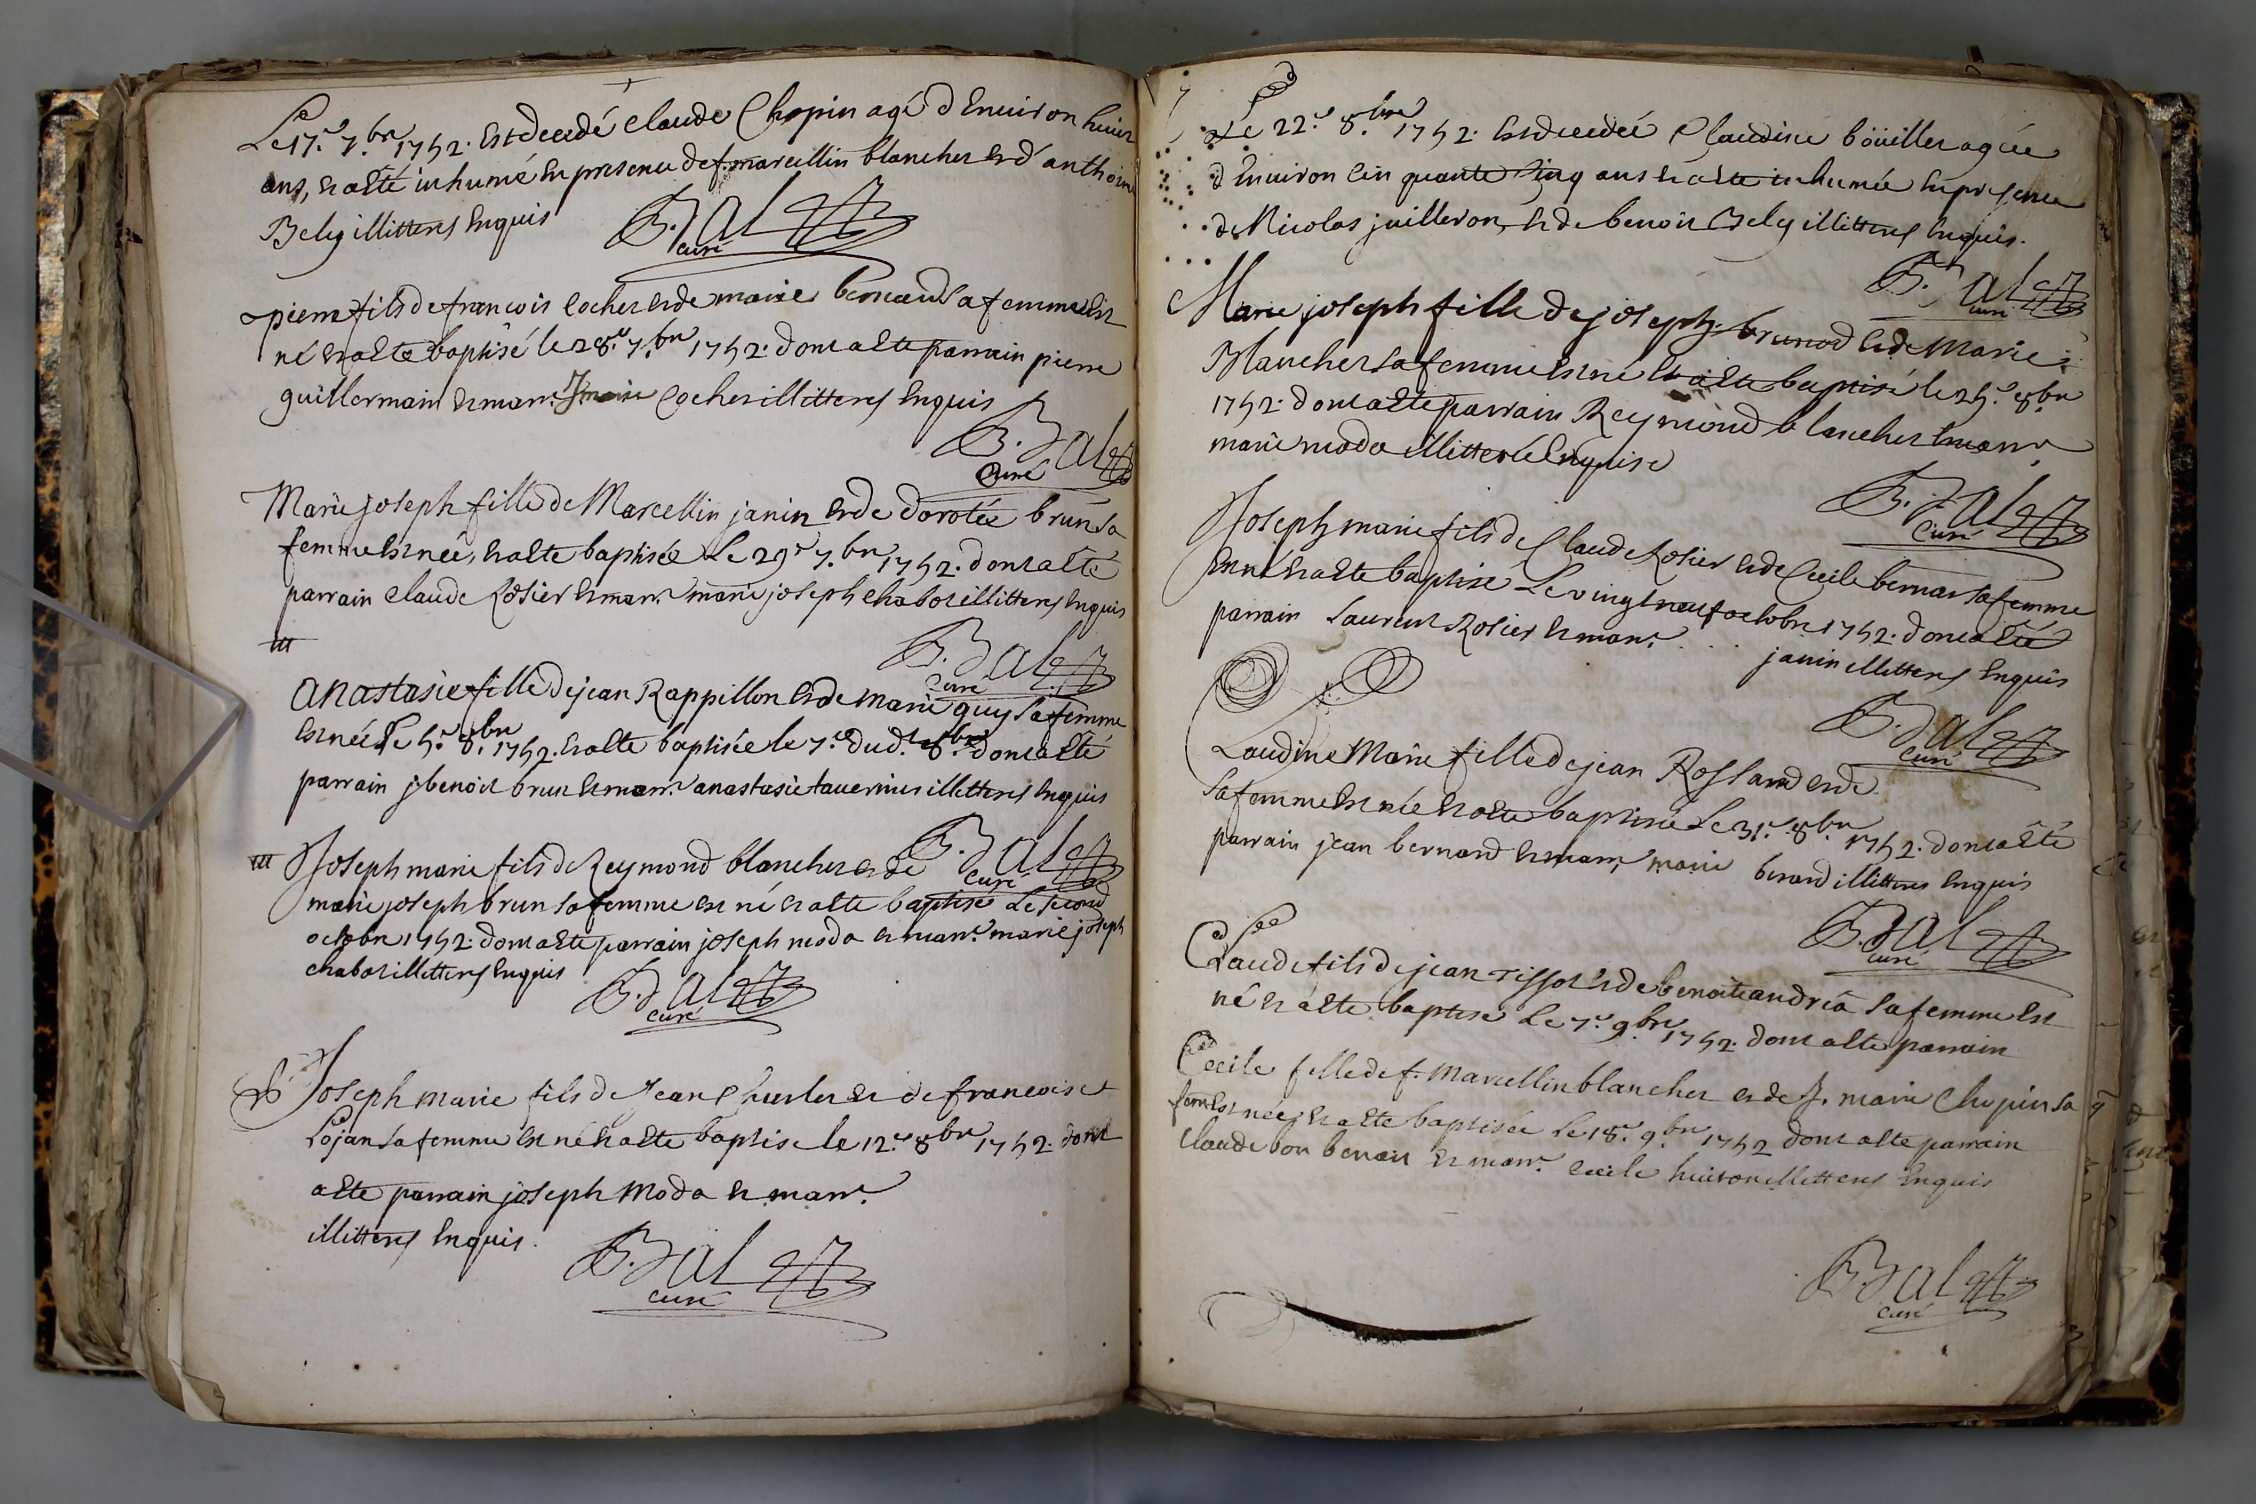 Le 17.e 7.bre 1752. est decedé claude Chopin agé d'environ huict
ans, et a esté inhumé en presence de f. marcellin blanchet et d'anthoine
Bely illitterés enquis
B. Jal
curé
pierre fils de francois cochet et de marie bernard sa femme est
né et a esté baptisé le 28.e 7.bre 1752. dont a esté parrain pierre
guillermain et marr.e marie Cochet illitterés enquis
B. Jal
Curé
Marie joseph fille de Marcellin janin et de dorotée brun sa
femme est née, et a esté baptisée Le 29.e 7.bre 1752. dont a esté
parrain claude Rosier et marr.e marie joseph chabot illitterés enquis
B. Jal
Curé
anastasie fille de jean Rappillon et de marie guy sa femme
est née le 5.e 8.bre 1752. et a esté baptisée le 7.e dud.t 8.bre dont a esté
parrain j. benoit brun et marr.e anastasie tavernier illitterés enquis
B. Jal
curé
Joseph marie fils de Reymond blanchet et de
marie joseph brun sa femme est né et a esté baptisé Le second
octobre 1752. dont a esté parrain joseph moda et marr.e marie joseph
chabot illitterés enquis
B. Jal
curé
Joseph marie fils de Jean et de francoise
Lojan sa femme est né et a esté baptisé le 12.e 8bre 1752. dont
a esté parrain joseph Moda et marr.e
illitterés enquis.
B. Jal
curé
Le 22.e 8.bre 1752. est decedée Claudine boüillet agée
d'environ cinquante cinq ans et a esté inhumée en presence
de Nicolas juilleron, et de benoit Bely illitterés enquis.
B. Jal
curé
Marie joseph fille de joseph brunod et de Marie
Blanchet sa femme est né et a esté baptisé le 25.e 8.bre
1752. dont a esté parrain Reymond blanchet et marr.e
marie moda illitterée enquise
B. Jal
Curé
Joseph marie fils de Claude Rosier et de Cecile bernar sa femme
est né et a esté baptisé Le vingt neuf octobre 1752. dont a esté
parrain Laurent Rosier et marr.e .... janin illitterés enquis
B. Jal
curé
Laudine Marie fille de jean Rossand et de
sa femme est née et a esté baptisée Le 31.e 8bre 1752. dont a esté
parrain jean bernard et marr.e marie berard illitterés enquis
B. Jal
curé
Claude fils de jean tissot et de benoite andréa sa femme est
né et a esté baptisé Le 7.e 9bre 1752. dont a esté parrain
Cecile fille de f. Marcellin blanchet et de J. marie Chopin sa
fem est née, et a esté baptisée le 18.e 9.bre 1752 dont a esté parrain
Claude bon benoit et marr.e cecile illitterés enquis
B. Jal
curé